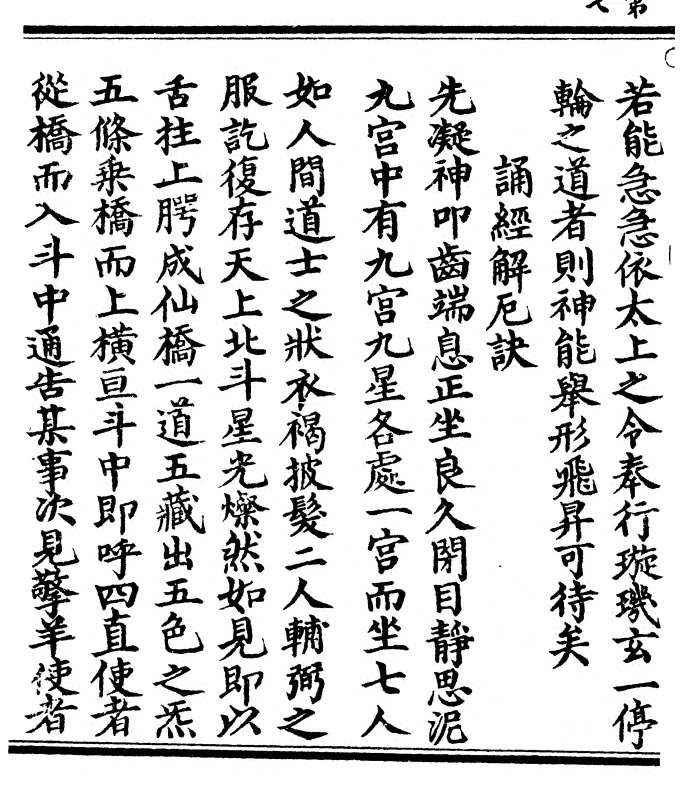 若能急急依太上之令奉行璇璣玄一停
輪之道者則神能舉形飛昇可待矣
誦經解厄訣
先凝神叩齒端息正坐良久閉目靜思泥
丸宮中有九宮九星各處一宮而坐七人
如人間道士之狀衣褐披髮二人輔弼之
服訖復存天上北斗星光燦然如見即以
舌拄上腭成仙橋一道五藏出五色之炁
五條乘橋而上橫亘斗中即呼四直使者
從橋而入斗中通告某事次見擎羊使者